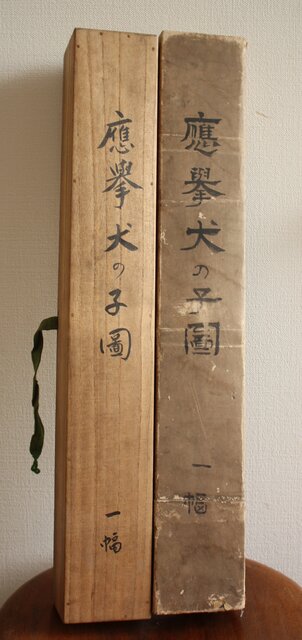 應擧犬の子圖 一幅
應擧犬の子圖 一幅